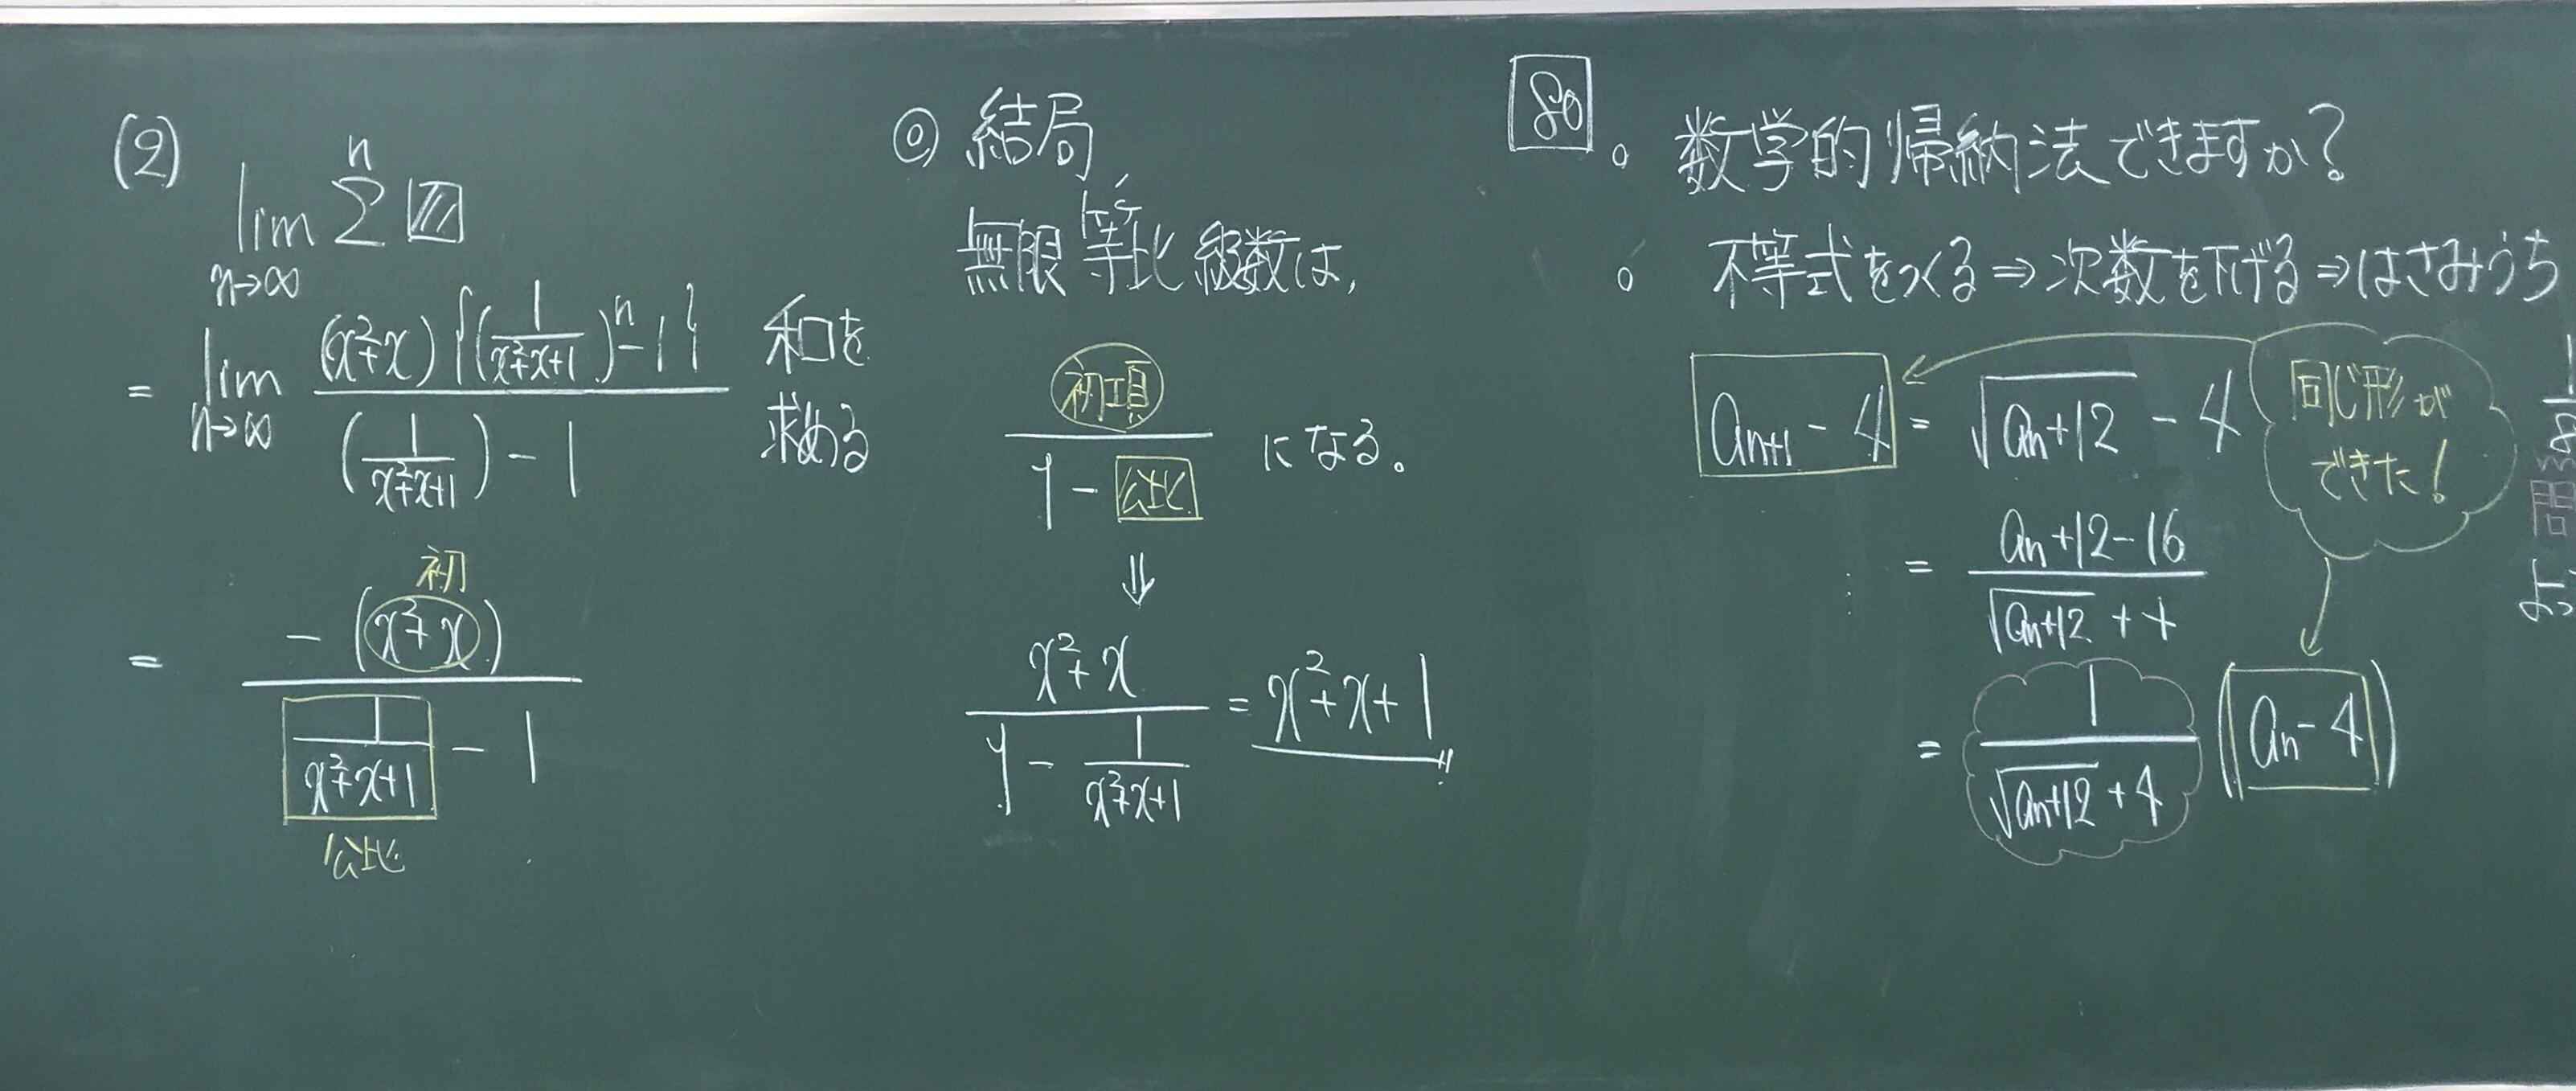 (2)
n
lim Σ
n→∞
= lim (x²+x){(1/(x²+x+1))ⁿ-1} / ((1/(x²+x+1))-1)
n→∞
和を
求める
初
= -(x²+x) / (1/(x²+x+1) - 1)
公比
◎ 結局、
無限等比級数は,
初項
1-公比
になる。
⇓
(x²+x) / (1 - 1/(x²+x+1)) = x²+x+1
80
。数学的帰納法できますか?
。不等式をつくる⇒次数を下げる⇒はさみうち
aₙ₊₁-4 = √(aₙ+12) - 4
同じ形が
できた!
= (aₙ+12-16) / (√(aₙ+12) + 4)
= 1/(√(aₙ+12) + 4) (aₙ-4)